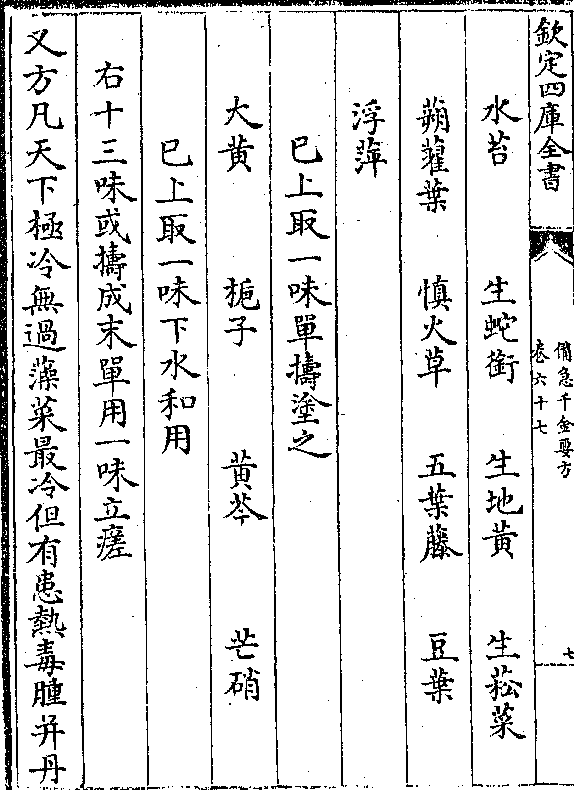 欽定四庫全書
備急千金要方
卷六十七
七
水苔 生蛇銜 生地黃 生菘菜
蒴藋葉 慎火草 五葉藤 豆葉
浮萍
已上取一味單擣塗之
大黃 梔子 黃芩 芒硝
已上取一味下水和用
右十三味或擣成末單用一味立瘥
又方凡天下極冷無過藻菜最冷但有患熱毒腫并丹